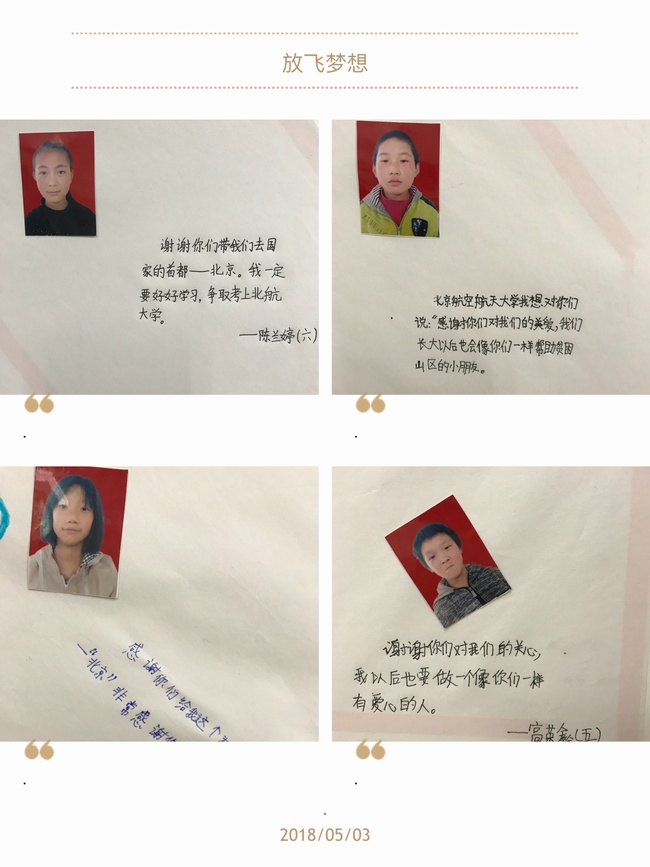 放飞梦想
谢谢你们带我们去国
家的首都——北京。我一定
要好好学习，争取考上北航
大学。
——陈兰婷(六)
北京航空航天大学我想对你们
说："感谢你们对我们的关爱，我们
长大以后也会像你们一样帮助贫困
山区的小朋友。
感谢你们给我这个
"北京"非常感谢
谢谢你们对我们的关心，
我以后也要做一个像你们一样
有爱心的人。
——高英(五)
2018/05/03